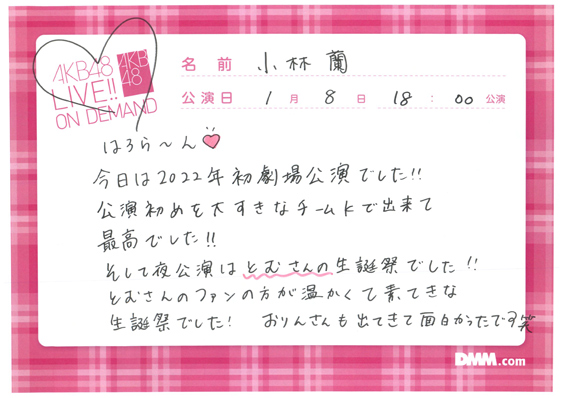 AKB48
LIVE!!
ON DEMAND
AKB
48
名前 小林 蘭
公演日 1月 8日 18:00 公演
はろら〜ん
今日は2022年初劇場公演でした!!
公演初めを大すきなチームKで出来て
最高でした!!
そして夜公演はとむさんの生誕祭でした!!
とむさんのファンの方が温かくて素てきな
生誕祭でした! おりんさんも出てきて面白かったです笑
DMM.com